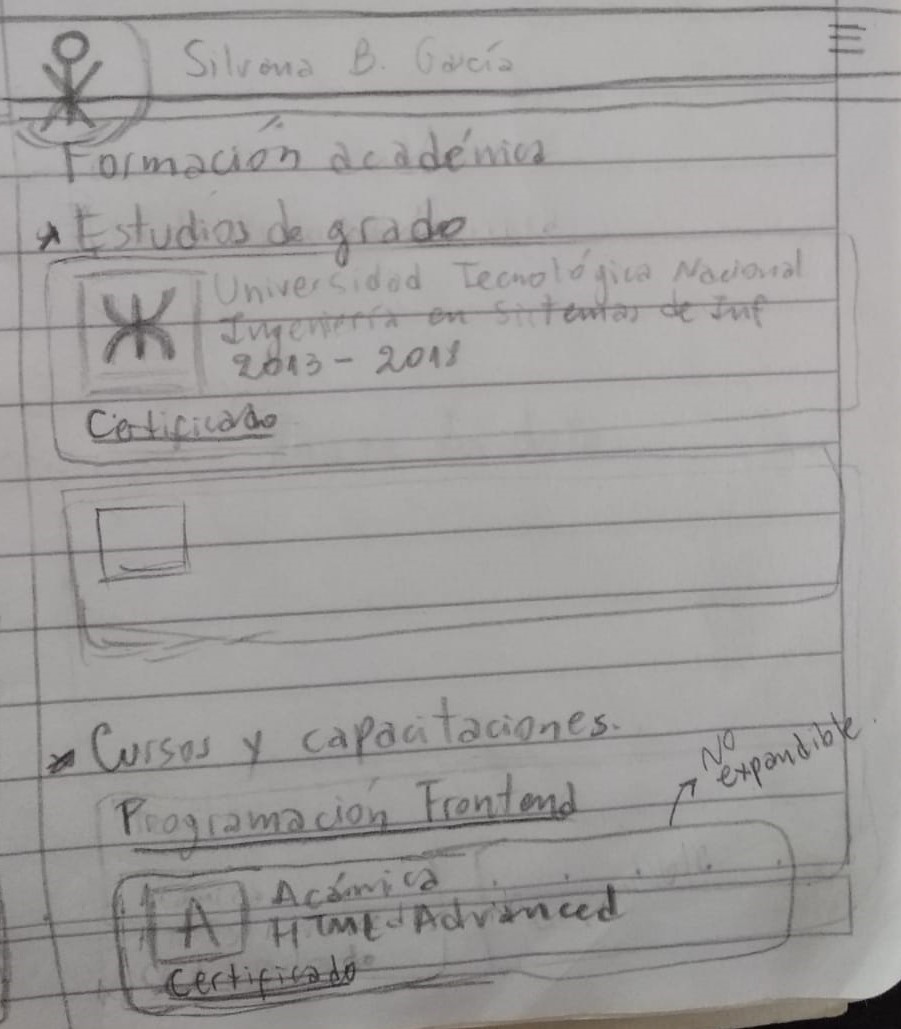 Silvana B. García
Formación académica
Estudios de grado
Universidad Tecnológica Nacional
Ingeniería en Sistemas de Inf
2013 - 2018
Certificado
Cursos y capacitaciones.
No
expandible.
Programación Frontend
Acámica
A
HTML Advanced
Certificado